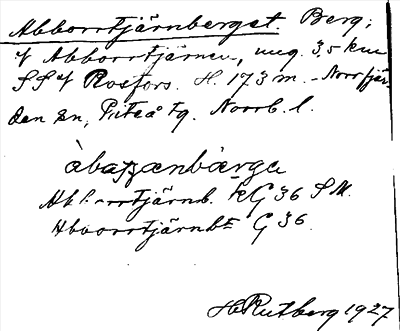 Abborrtjärnberget. Berg;
V Abborrtjärnen, ung. 3,5 km
SSV Rosfors. H. 173 m. - Norrfjär-
den sn, Piteå tg. Norrb. l.
Abborrtjärnb. kG 36 SM.
Abborrtjärnbt G 36.
H Rutberg 1927